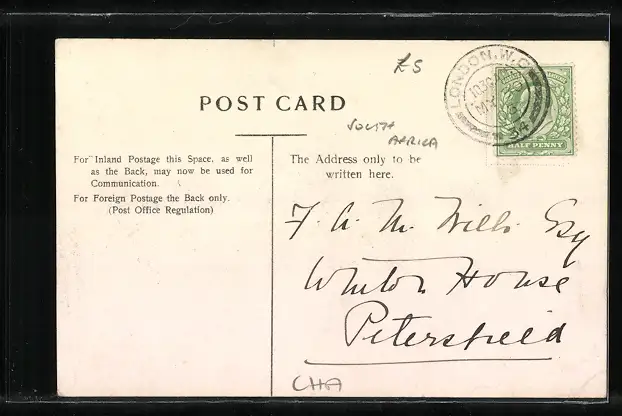 £5
LONDON. W.C.
MY
04
HALF PENNY
POST CARD
SOUTH
AFRICA
For Inland Postage this Space, as well
as the Back, may now be used for
Communication.
For Foreign Postage the Back only.
(Post Office Regulation)
The Address only to be
written here.
F. A. M. Wills. Esq
House
Petersfield
CHA